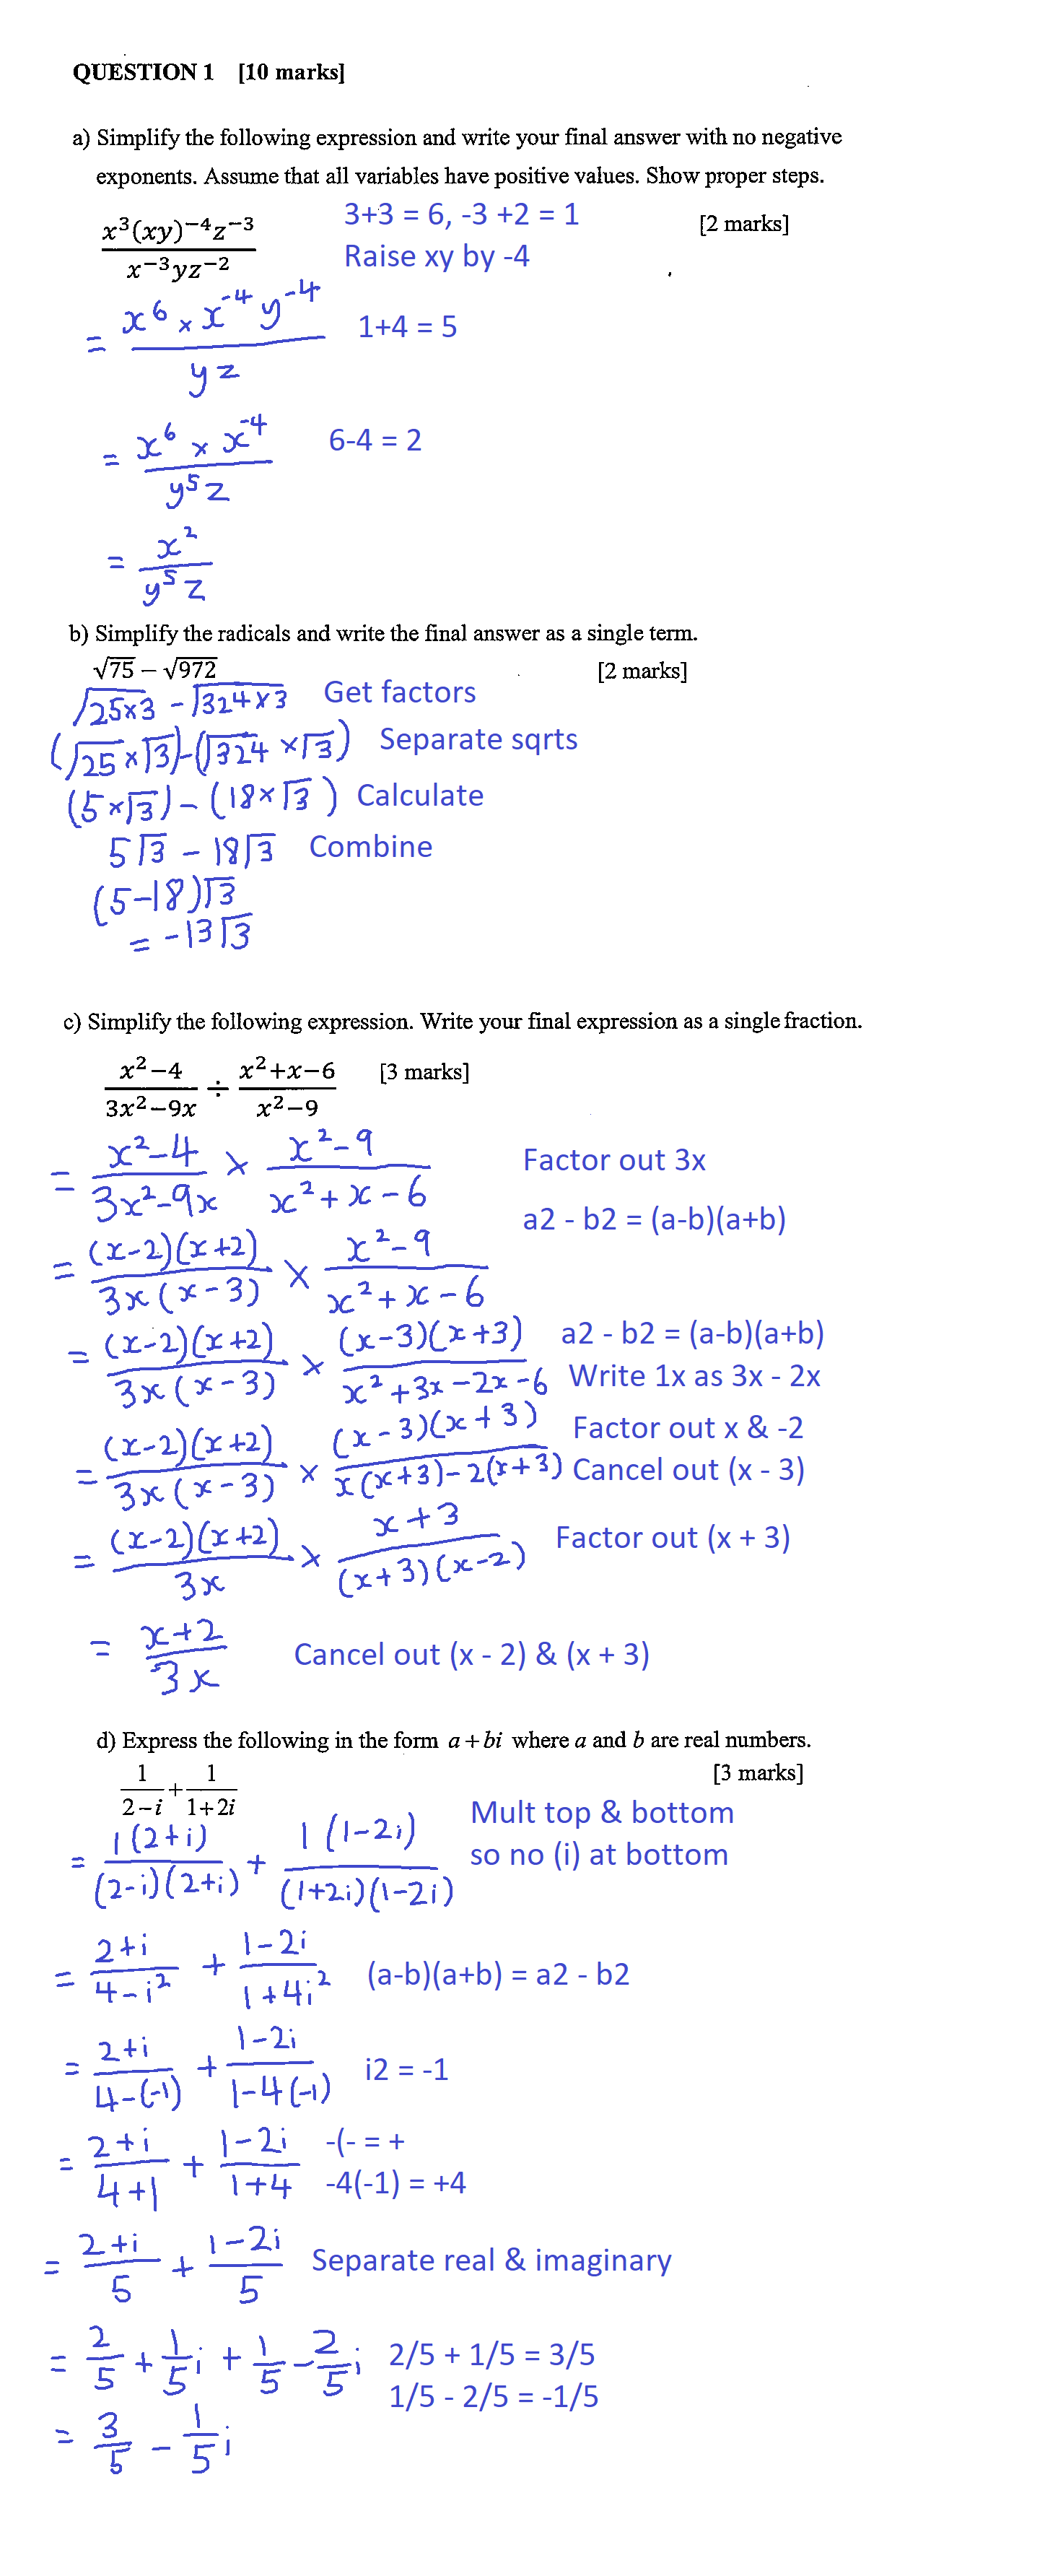 QUESTION 1 [10 marks]
a) Simplify the following expression and write your final answer with no negative
exponents. Assume that all variables have positive values. Show proper steps.
x³(xy)⁻⁴z⁻³ / x⁻³yz⁻² 3+3 = 6, -3 +2 = 1 [2 marks]
Raise xy by -4
= x⁶ × x⁻⁴ y⁻⁴ / yz 1+4 = 5
= x⁶ × x⁻⁴ / y⁵z 6-4 = 2
= x² / y⁵z
b) Simplify the radicals and write the final answer as a single term.
√75 – √972 [2 marks]
√25×3 - √324×3 Get factors
(√25 × √3) - (√324 × √3) Separate sqrts
(5 × √3) - (18 × √3) Calculate
5√3 - 18√3 Combine
(5-18)√3
= -13√3
c) Simplify the following expression. Write your final expression as a single fraction.
x²−4 / 3x²−9x ÷ x²+x−6 / x²−9 [3 marks]
= x²-4 / 3x²-9x × x²-9 / x²+x-6 Factor out 3x
a2 - b2 = (a-b)(a+b)
= (x-2)(x+2) / 3x(x-3) × x²-9 / x²+x-6
= (x-2)(x+2) / 3x(x-3) × (x-3)(x+3) / x²+3x-2x-6 a2 - b2 = (a-b)(a+b)
Write 1x as 3x - 2x
= (x-2)(x+2) / 3x(x-3) × (x-3)(x+3) / x(x+3)-2(x+3) Factor out x & -2
Cancel out (x - 3)
= (x-2)(x+2) / 3x × x+3 / (x+3)(x-2) Factor out (x + 3)
= x+2 / 3x Cancel out (x - 2) & (x + 3)
d) Express the following in the form a + bi where a and b are real numbers.
1 / 2−i + 1 / 1+2i [3 marks]
= 1(2+i) / (2-i)(2+i) + 1(1-2i) / (1+2i)(1-2i) Mult top & bottom
so no (i) at bottom
= 2+i / 4-i² + 1-2i / 1+4i² (a-b)(a+b) = a2 - b2
= 2+i / 4-(-1) + 1-2i / 1-4(-1) i2 = -1
= 2+i / 4+1 + 1-2i / 1+4 -(- = +
-4(-1) = +4
= 2+i / 5 + 1-2i / 5 Separate real & imaginary
= 2/5 + 1/5 i + 1/5 - 2/5 i 2/5 + 1/5 = 3/5
1/5 - 2/5 = -1/5
= 3/5 - 1/5 i